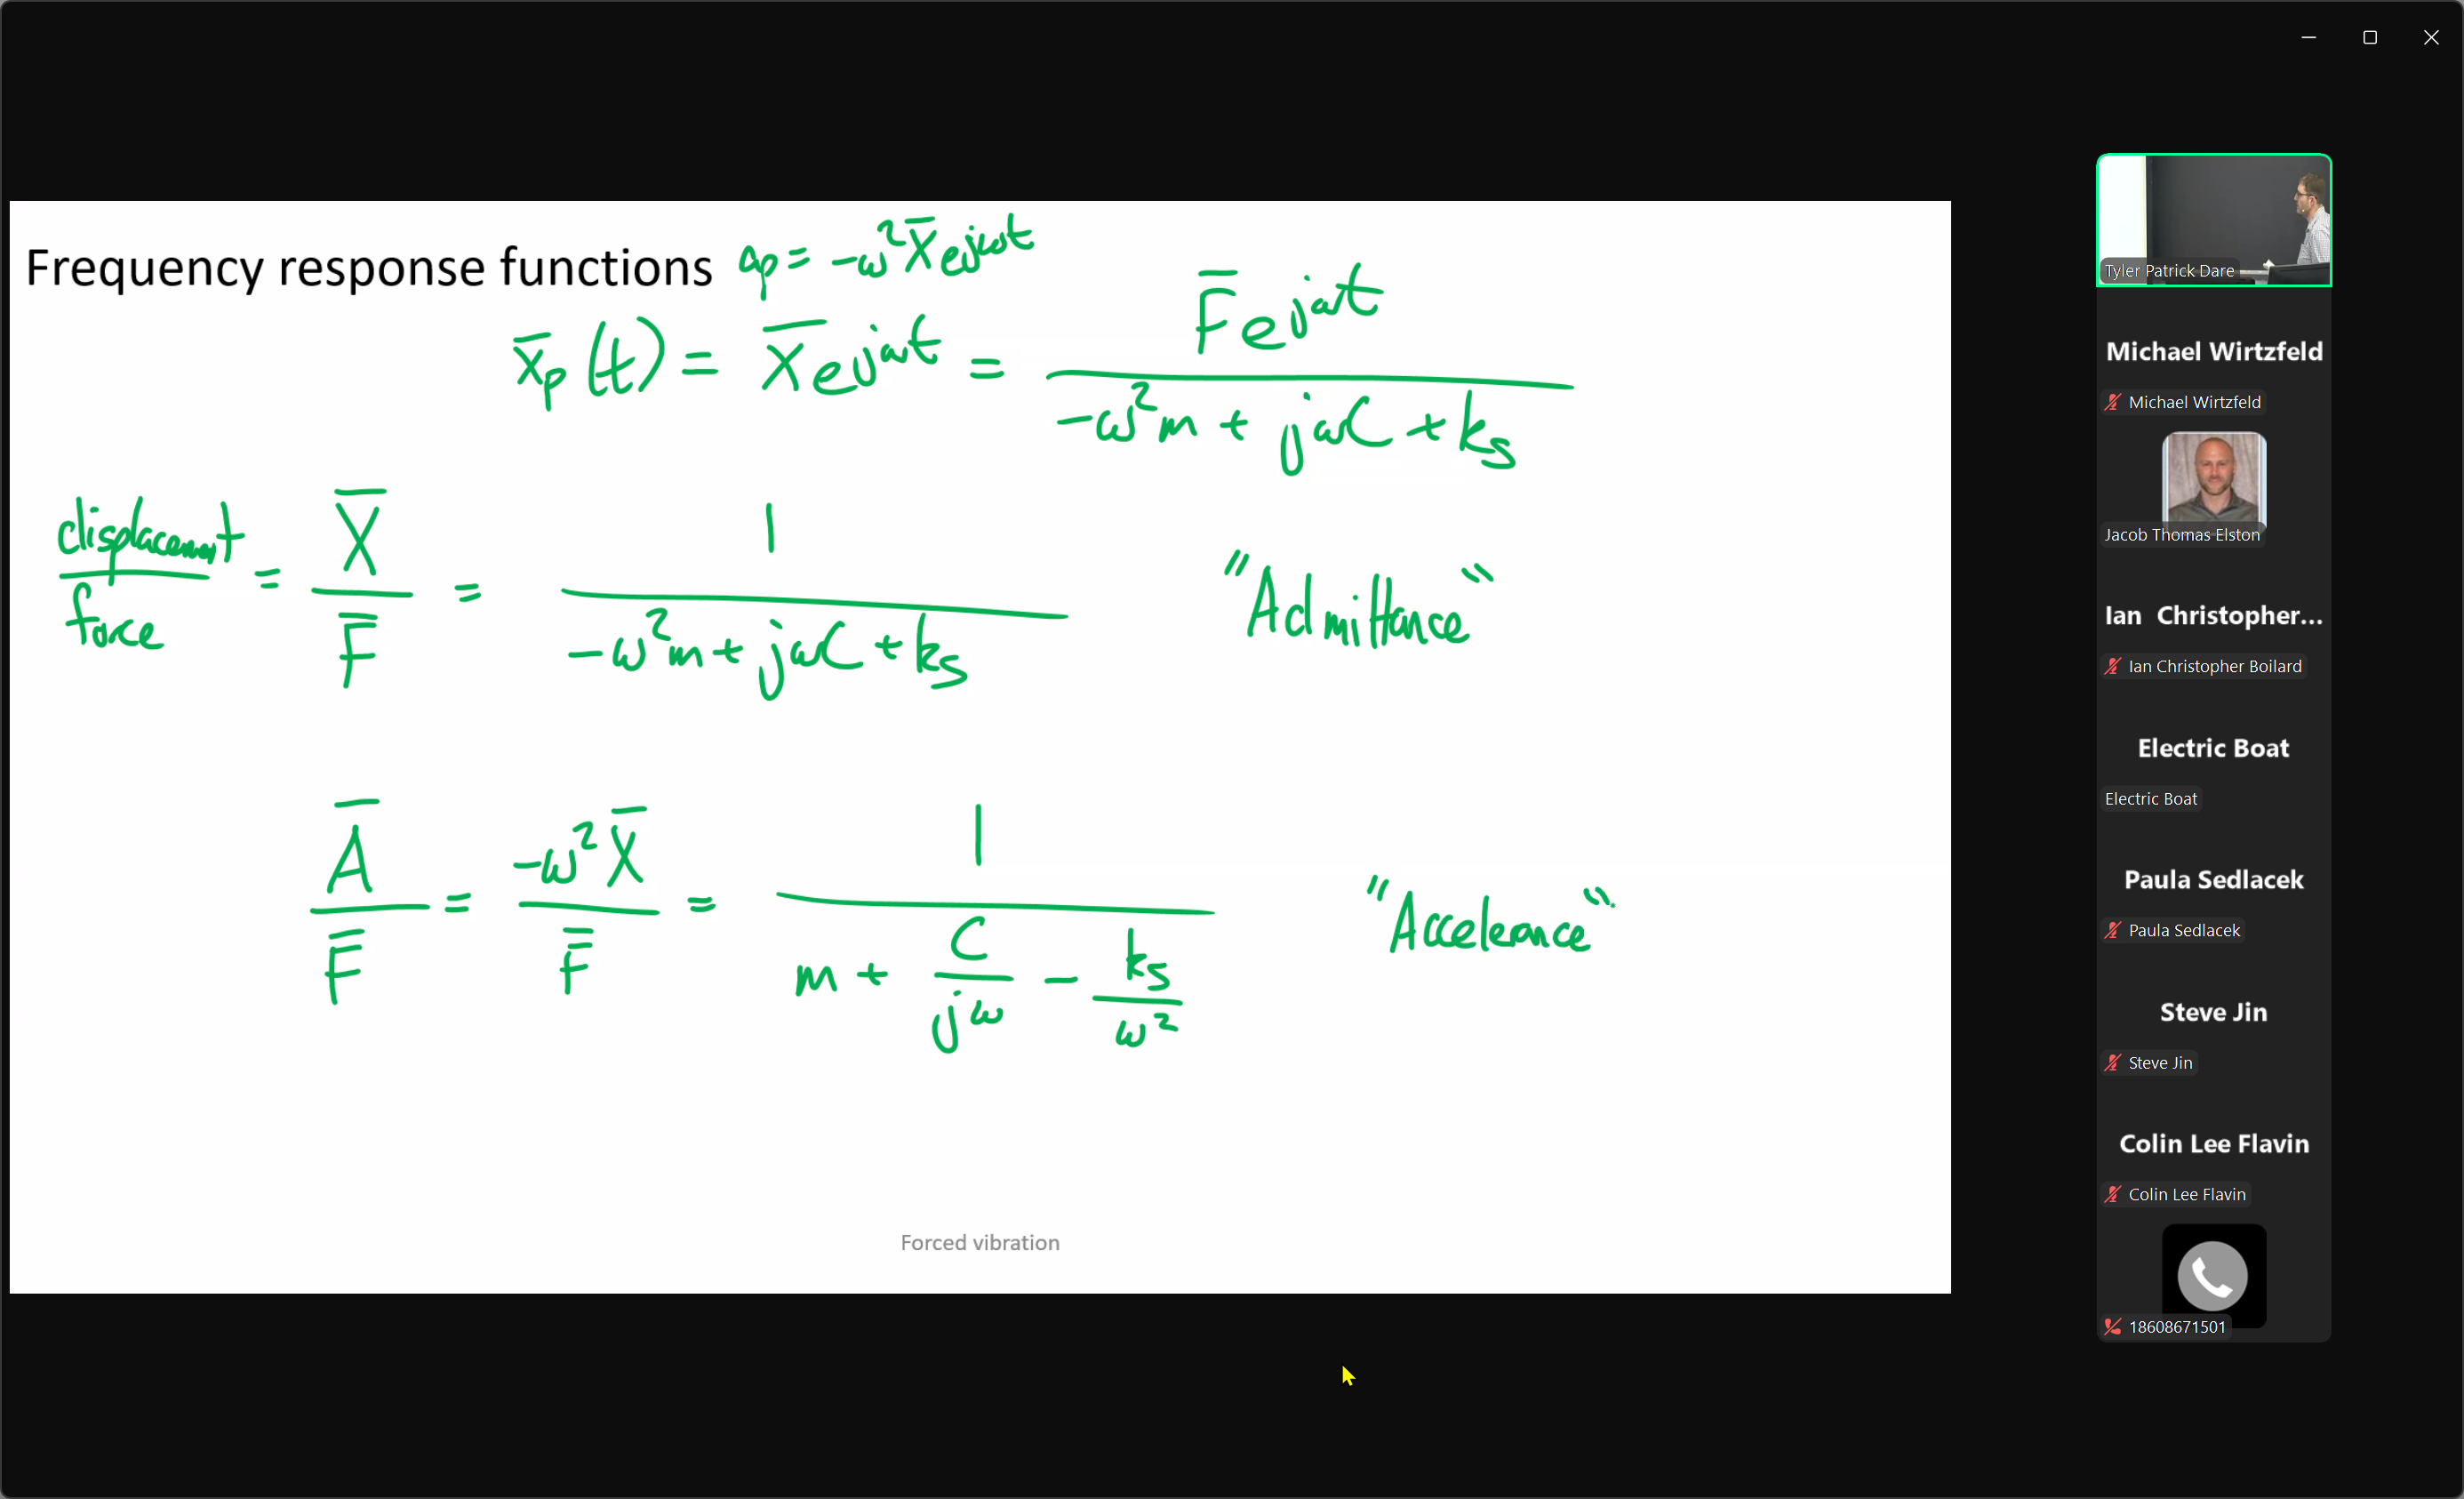 Frequency response functions a_p = -ω² X̄ e^{jωt}
x̄_p(t) = X̄ e^{jωt} = F̄ e^{jωt} / (-ω²m + jωC + k_s)
displacement / force = X̄ / F̄ = 1 / (-ω²m + jωC + k_s) "Admittance"
Ā / F̄ = -ω² X̄ / F̄ = 1 / (m + C/jω - k_s/ω²) "Accelerance"
Forced vibration
Tyler Patrick Dare
Michael Wirtzfeld
Michael Wirtzfeld
Jacob Thomas Elston
Ian Christopher...
Ian Christopher Boilard
Electric Boat
Electric Boat
Paula Sedlacek
Paula Sedlacek
Steve Jin
Steve Jin
Colin Lee Flavin
Colin Lee Flavin
18608671501